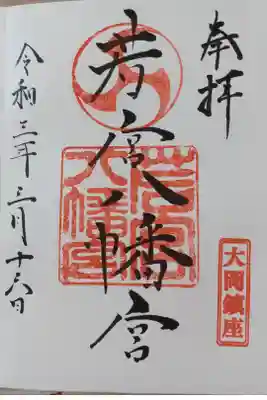 奉拝
大岡鎮座
若宮八幡宮
令和三年三月十六日